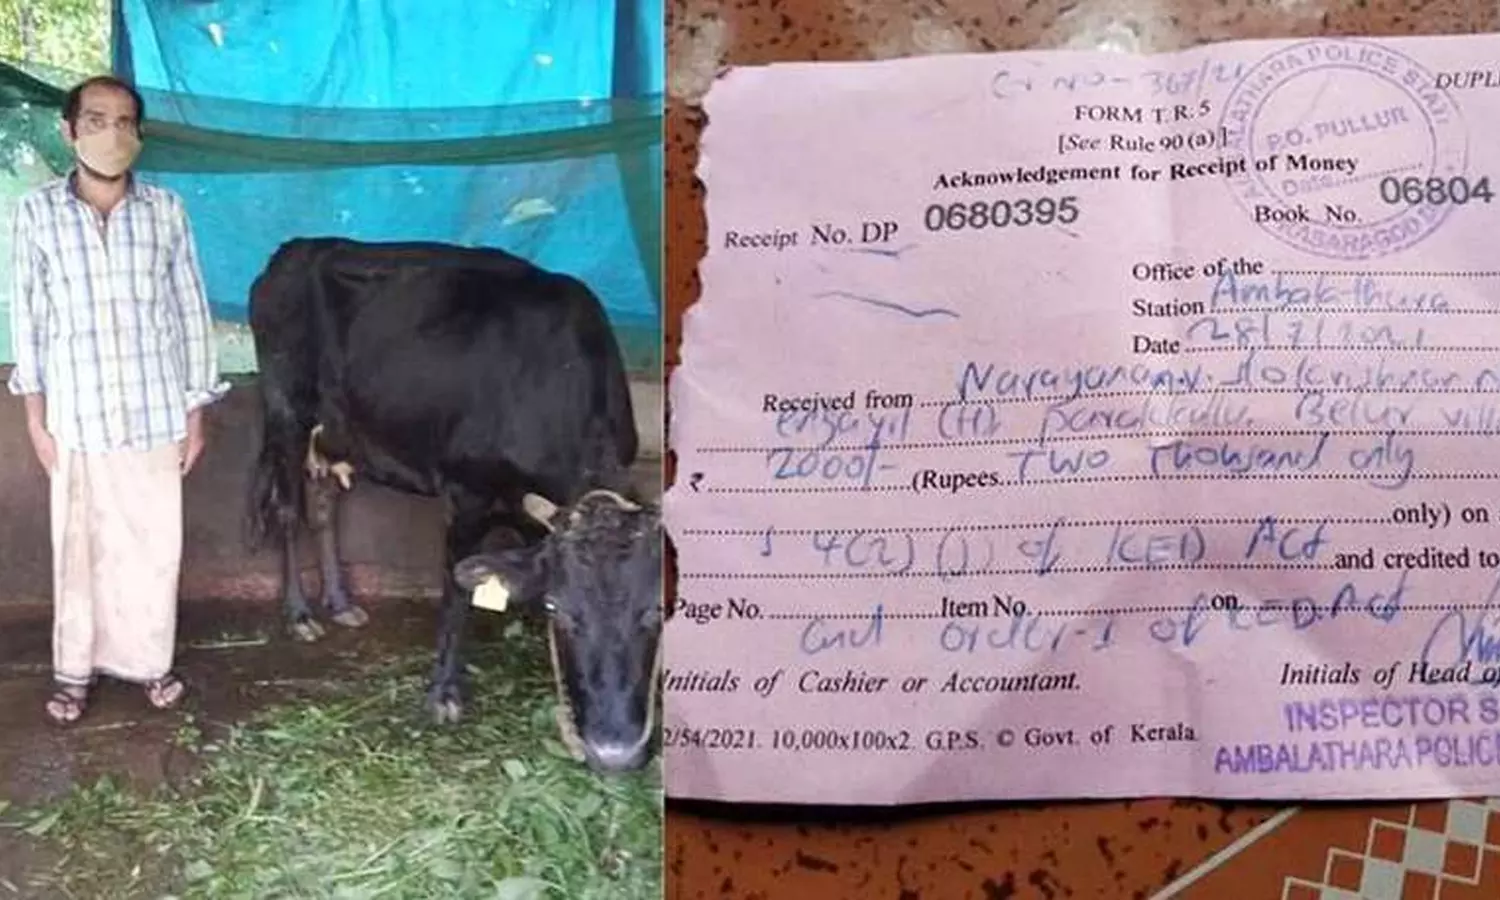 Cr NO - 367/21
DUPLI
FORM T. R. 5
[See Rule 90 (a)]
Acknowledgement for Receipt of Money
AMBALATHARA POLICE STATI
P.O. PULLUR
Date
KASARAGOD
Receipt No. DP 0680395
Book No. 06804
Office of the
Station Ambalathara
Date 28/7/2021
Received from Narayanan.v. S/o Krishnan N
(H) parakkalu. Belur villa
₹ 2000/- (Rupees Two Thousand only
only) on
4(2) (J) of KED Act and credited to
Page No. Item No. on
and order-1 of KED Act
Initials of Cashier or Accountant.
Initials of Head of
INSPECTOR S
AMBALATHARA POLICE
2/54/2021. 10,000x100x2. G.P.S. © Govt. of Kerala.